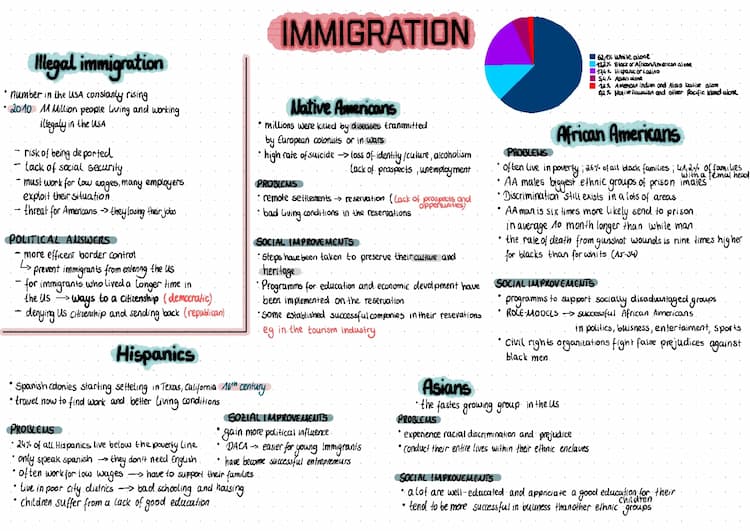 IMMIGRATION
62,1% White alone
13,2% Black or African American alone
17,4% Hispanic or Latino
5,4% Asian alone
American Indian and Alaska Native alone
Native Hawaiian and other Pacific Island alone
Illegal immigration
• number in the USA constasly rising
• 2010 11 Million people living and working
illegaly in the USA
- risk of being deported
- lack of social security
- must work for low wages, many employers
exploit their situation
- threat for Americans → they losing their jobs
POLITICAL ANSWERS
- more efficent border control
↳ prevent immigrants from entering the US
- for immigrants who lived a longer time in
the US → ways to a citizenship (democratic)
- denying US citizenship and sending back (republican)
Native Americans
• millions were killed by diseases transmitted
by European colonists or in wars
• high rate of suicide → loss of identity/culture, alcoholism
lack of prospects, unemployment
PROBLEMS
• remote settlements → reservation (lack of prospects and
opportunities)
• bad living conditions in the reservations
SOCIAL IMPROVEMENTS
• Steps have been taken to preserve their culture and
heritage
• Programms for education and economic development have
been implemented on the reservation
• Some established successful companies in their reservations
eg in the tourism industry
African Americans
PROBLEMS
• often live in poverty; of all black families; of families
with a femal head
• AA males biggest ethnic groups of prison inmates
• Discrimination still exists in a lots of areas
• AA man is six times more likely send to prison
in average 10 month longer than while man
• the rate of death from gunshot wounds is nine times higher
for blacks than for whits (15-34)
SOCIAL IMPROVEMENTS
• programms to support socially disadvantaged groups
• ROLE-MODELS → successful African Americans
in politics, buisness, entertaiment, sports
• Civil rights organizations fight false prejudices against
black men
Hispanics
• Spanish colonies starting setteling in Texas, California 16th century
• travel now to find work and better living conditions
PROBLEMS
• 24% of all Hispanics live below the poverty line
• only speak spanish → they don't need English
• often work for low wages → have to support their families
• live in poor city districts → bad schooling and housing
• children suffer from a lack of good education
SOZIAL IMPROVEMENTS
• gain more political influence
• DACA → easier for young Immigrants
• have become successful entrepreneurs
Asians
• the fastes growing group in the US
PROBLEMS
• experience racial discrimination and prejudice
• conduct their entire lives within their ethnic enclaves
SOCIAL IMPROVEMENTS
• a lot are well-educated and appreciate a good education for their
children
• tend to be more successful in buisness than other ethnic groups